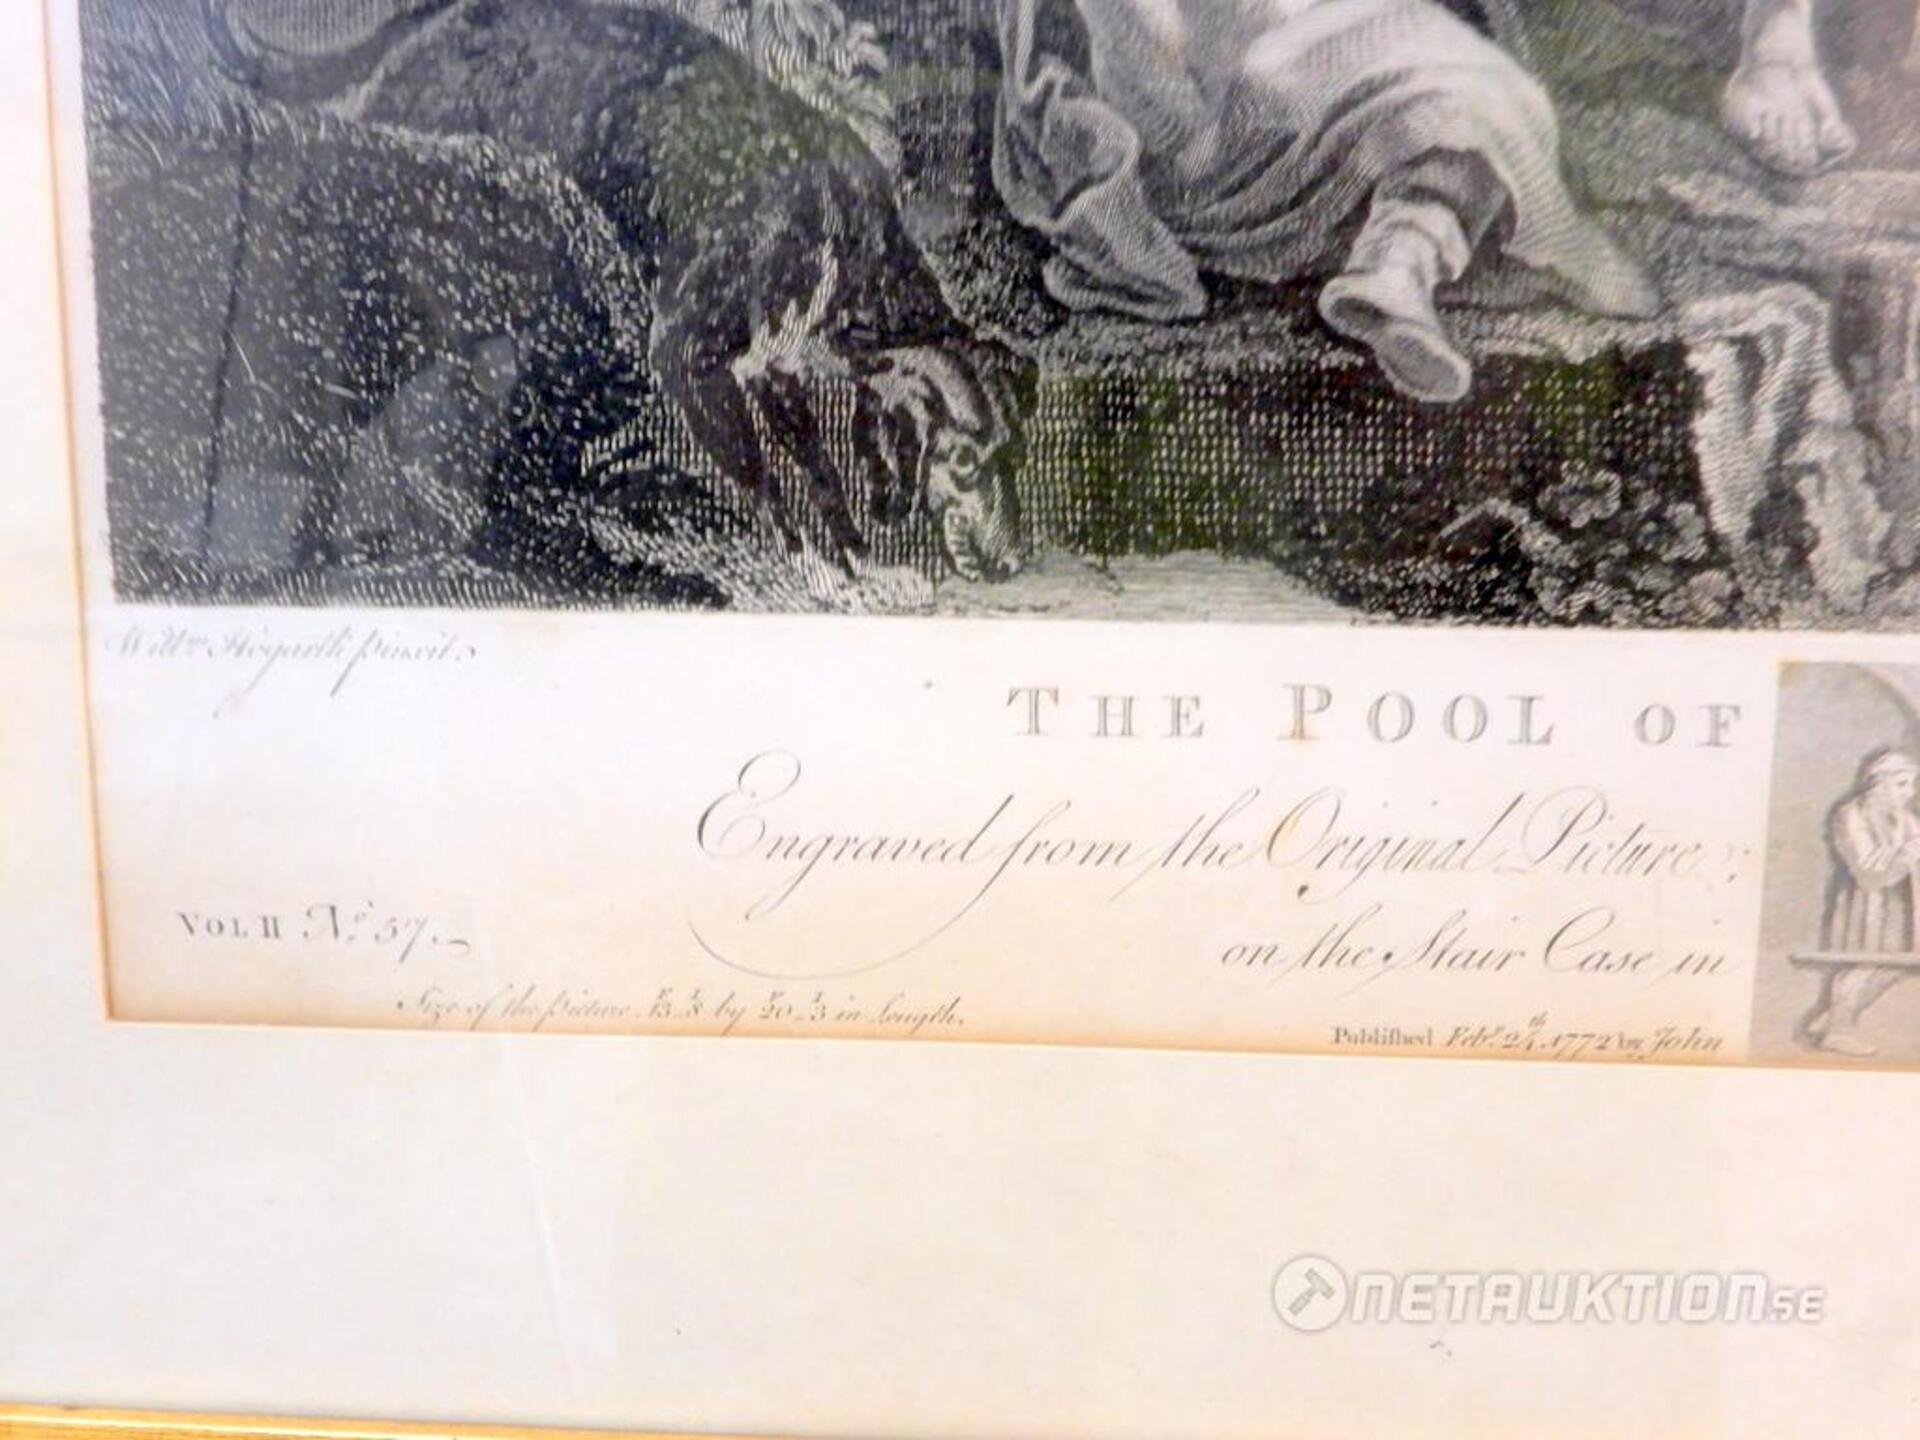 Willm. Hogarth pinxit.
THE POOL OF
Engraved from the Original Picture;
on the Stair Case in
VOL II No. 57.
Size of the picture F13. I8 by F20. I3 in Length.
Published Febr. 24th. 1772 by John
NETAUKTION.SE